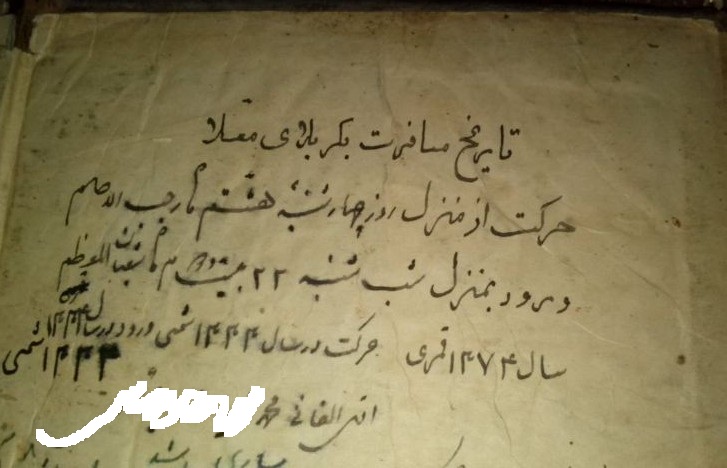 تاریخ مسافرت بکربلای معلا
حرکت از منزل روز چهارشنبه هشتم ماه رجب الاصم
ورود بمنزل شب شنبه ۲۲ بیست و دوم ماه شعبان المعظم
سال ۱۳۷۴ قمری حرکت در سال ۱۳۳۳ شمسی ورود در سال
۱۳۳۴ شمسی
الفانی محمد